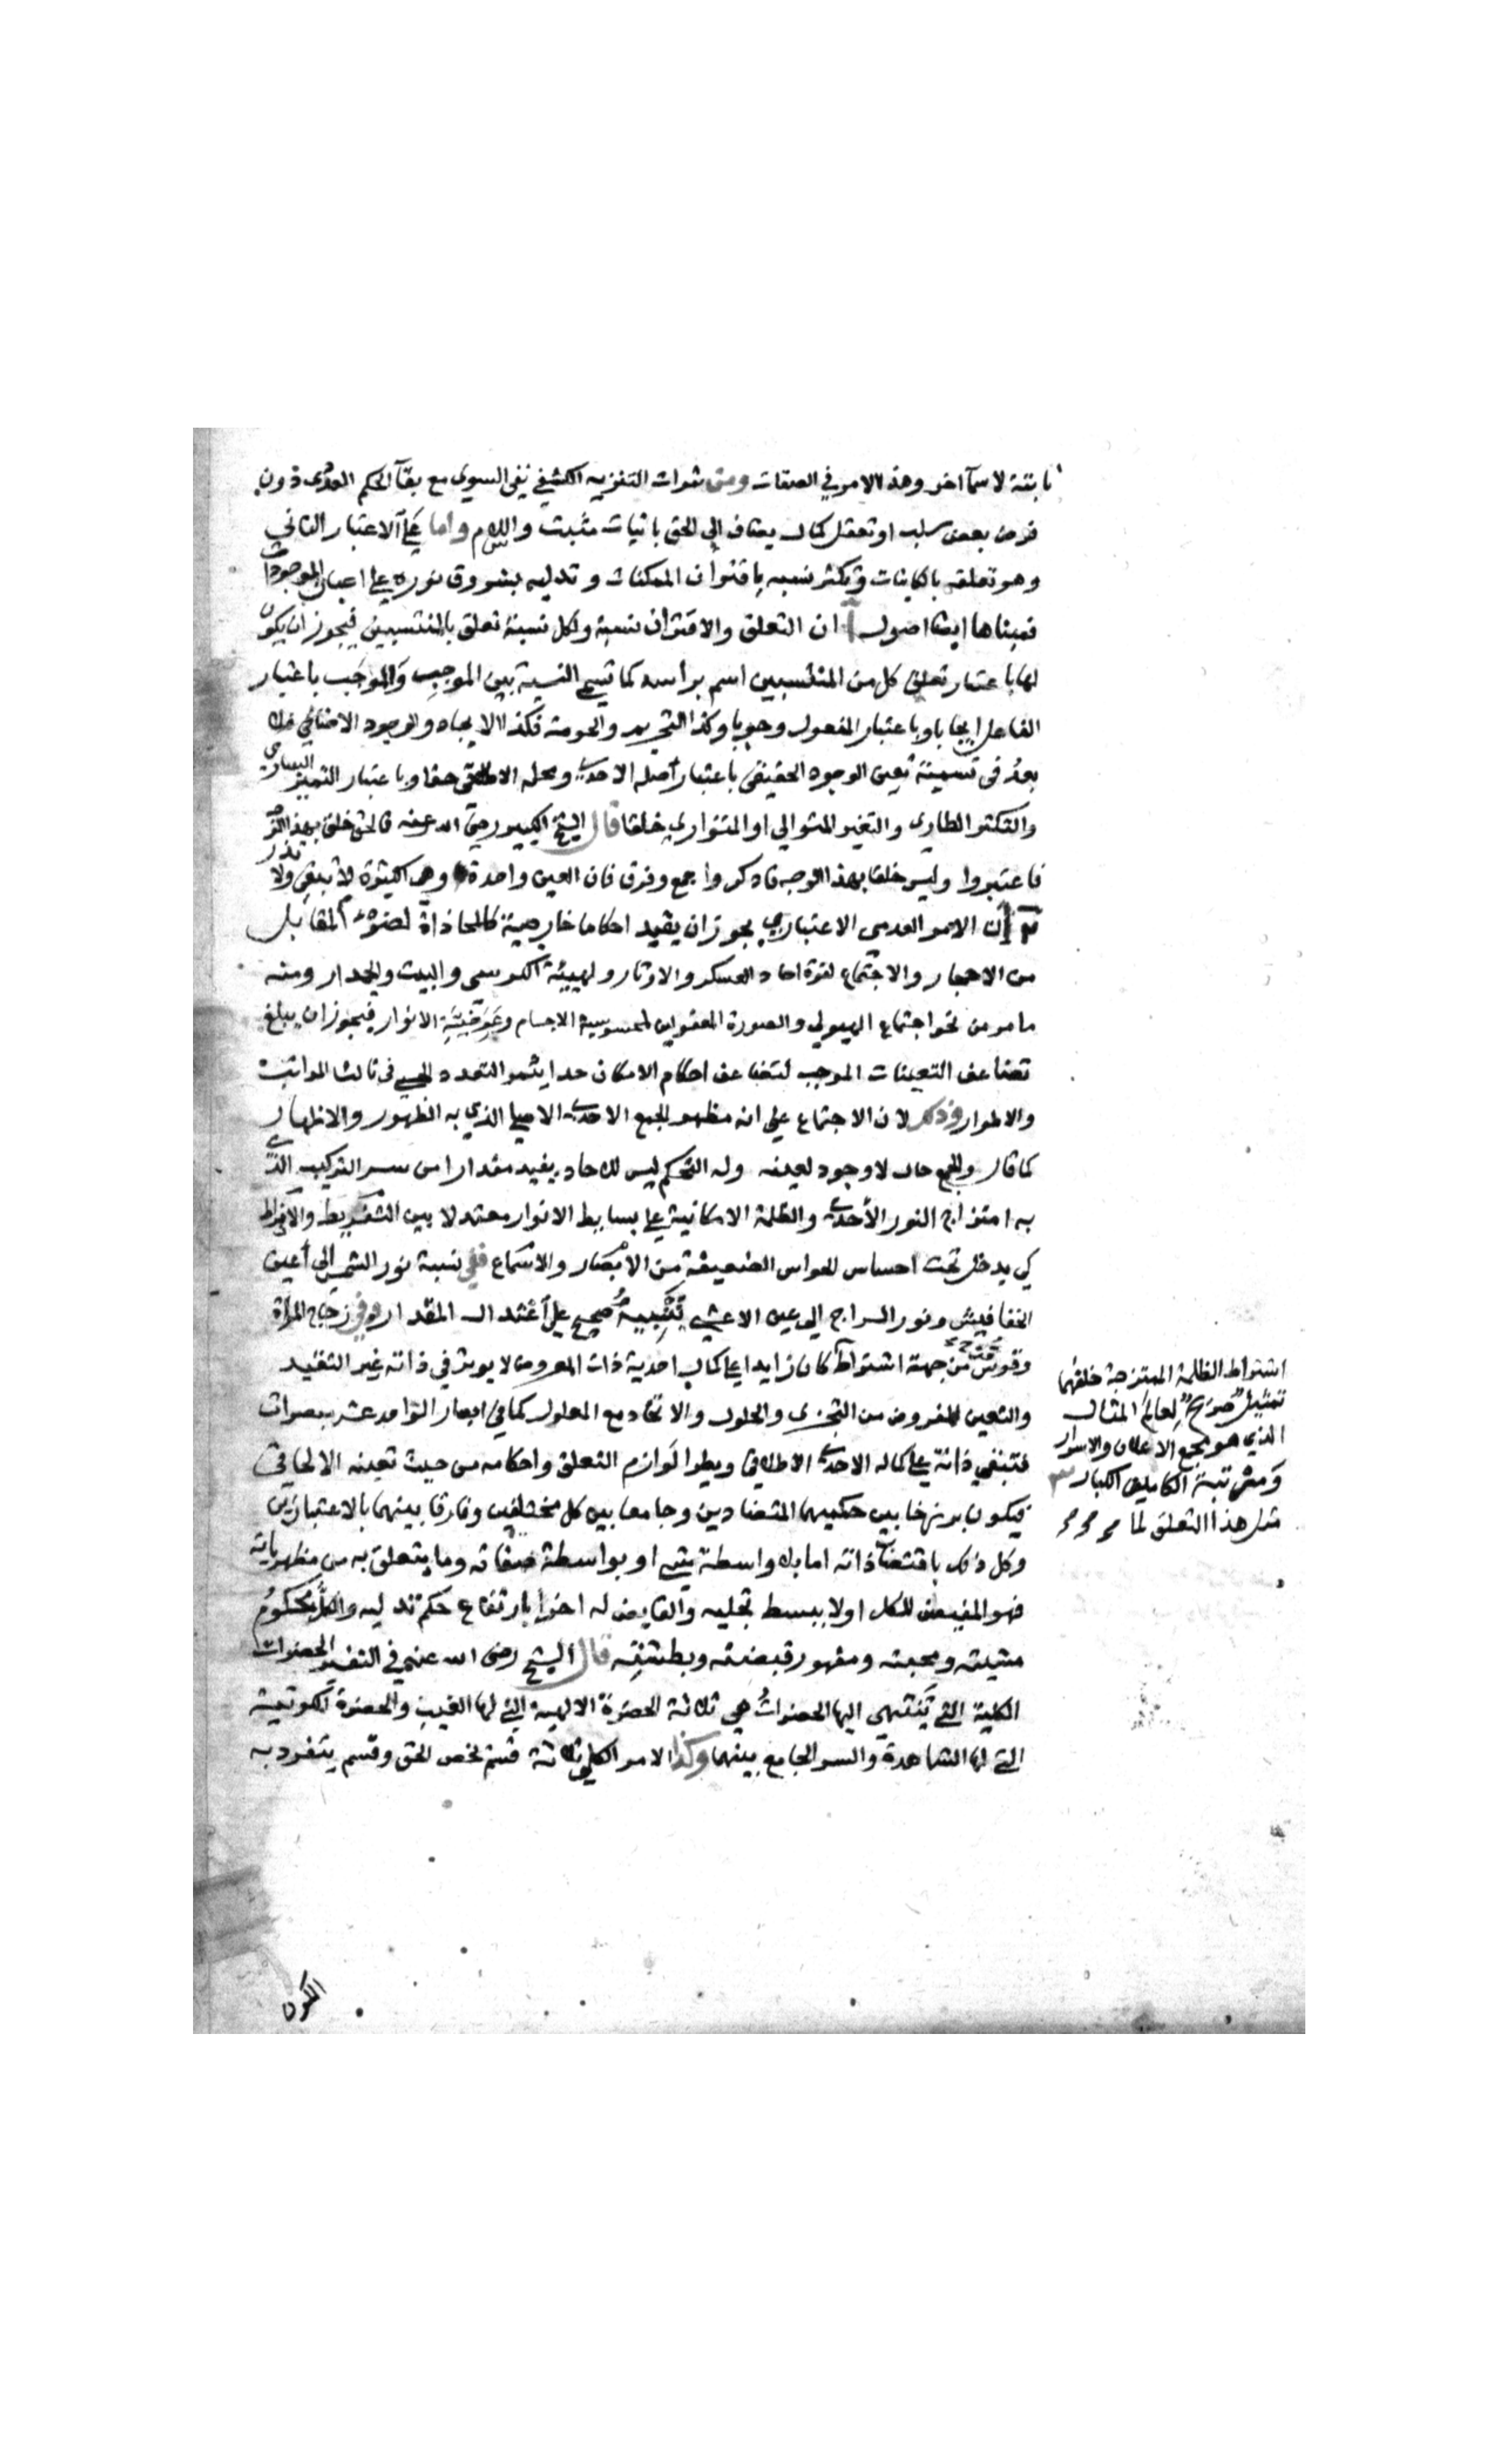 ثابتة لاسماء اخر وهذا الامر في الصفات ومن ثمرات التنزيه الكشفي نفي السوي مع بقاء الحكم العددي دون
فرض بعض سلب او تعقل كمال يضاف الى الحق باثبات مثبت والسلام واما على الاعتبار الثاني
وهو تعلقه بالكاينات وتكثر نسبه باقتران الممكنات وتدليه بشروق نوره على اعيان الموجودات
فمبناها ايضا اصول ا ان التعلق والاقتران نسبة ولكل نسبة تعلق بالمنتسبين فيجوز ان يكون
لها باعتبار تعلق كل من المنتسبين اسم براسه كما تسمى النسبة بين الموجِب والموجَب باعتبار
الفاعل ايجابا وباعتبار المفعول وجوبا وكذا التحريم والحرمة فكذا الايجاد والوجود الاضافي فلا
بعد في تسمية تعين الوجود الحقيقي باعتبار اصله الاحدي ومحله الاطلاقي حقا وباعتبار التميز الساري
والتكثر الطاري والتغير المتوالي او المتواري خلقا قال الشيخ الكبير رضي الله عنه فالحق خلق بهذا الوجه
فاعتبروا وليس خلقا بهذا الوجه فادكروا جمع وفرق فان العين واحدة وهي الكثيرة لا تبقي ولا تذر
٢ ان الامر العدمي الاعتباري يجوز ان يفيد احكاما خارجية كالمحاذاة لضوء المقابل
من الاحجار والاجتماع لقوة احاد العسكر والاوتار ولهيئة الكرسي والبيت والجدار ومنه
ما مر من نحو اجتماع الهيولي والصورة المعقولين لمحسوسية الاجسام وعرضية الانوار فيجوز ان يبلغ
تضاعف التعينات الموجب لتضاعف احكام الامكان حدا يثمر التعدد الحسي في ثالث المراتب
والاطوار وذلك لان الاجتماع على انه مظهر الجمع الاحدي الاصلي الذي به الظهور والاظهار
كما قال وللجمع حال لا وجود لعينه وله التحكم ليس للاحاد يفيد مقدارا من سر التركيب الذي
به امتزاج النور الاحدي والظلمة الامكانية على بسايط الانوار معتدلا بين التفريط والافراط
كي يدخل تحت احساس الحواس الضعيفة من الابصار والاسماع ففي نسبة نور الشمس الى اعين
الخفافيش ونور السراج الى عين الاعشى تشبيه صحيح على اعتدال المقدار وفي زجاج المرآة
وقوس قزح من جهة اشتراط كان زايدا على كمال احدية ذات المعروض لا يوثر في ذاته غير التقيد
والتعين المفروض من التجزي والحلول والاتحاد مع المعلول كما في ابصار الواحد عشر مبصرات
فتبقي ذاته على كماله الاحدي الاطلاقي ويطرا لوازم التعلق واحكامه من حيث تعينه الالحاقي
فيكون برزخا بين حكميهما المتضادين وجامعا بين كل مختلفين وفارقا بينهما بالاعتبارين
وكل ذلك باقتضاء ذاته اما بلا واسطة شي او بواسطة صفاته وما يتعلق به من مظهرياته
فهو المفيض للكل اولا ببسط تجليه والقابض له اخرا بارتفاع حكم تدليه والكل محكوم
مشيته ومحبته ومقهور قبضته وبطشته قال الشيخ رضى الله عنه في التفسير الحضرات
الكلية التي تنتهي اليها الحضرات هي ثلاثة الحضرة الالهية التي لها الغيب والحضرة الكونية
التي لها الشهادة والسر الجامع بينهما وكذا الامر الكلي ثلاثة قسم يخص الحق وقسم يتفرد به
الكون
اشتراط الظلمة الممتزجة خلفهما
تمثيل صريح لعالم المثال
الذي هو مجمع الاعلان والاسرار
ومرتبة الكاملين الكبار
مثل هذا التعلق لما